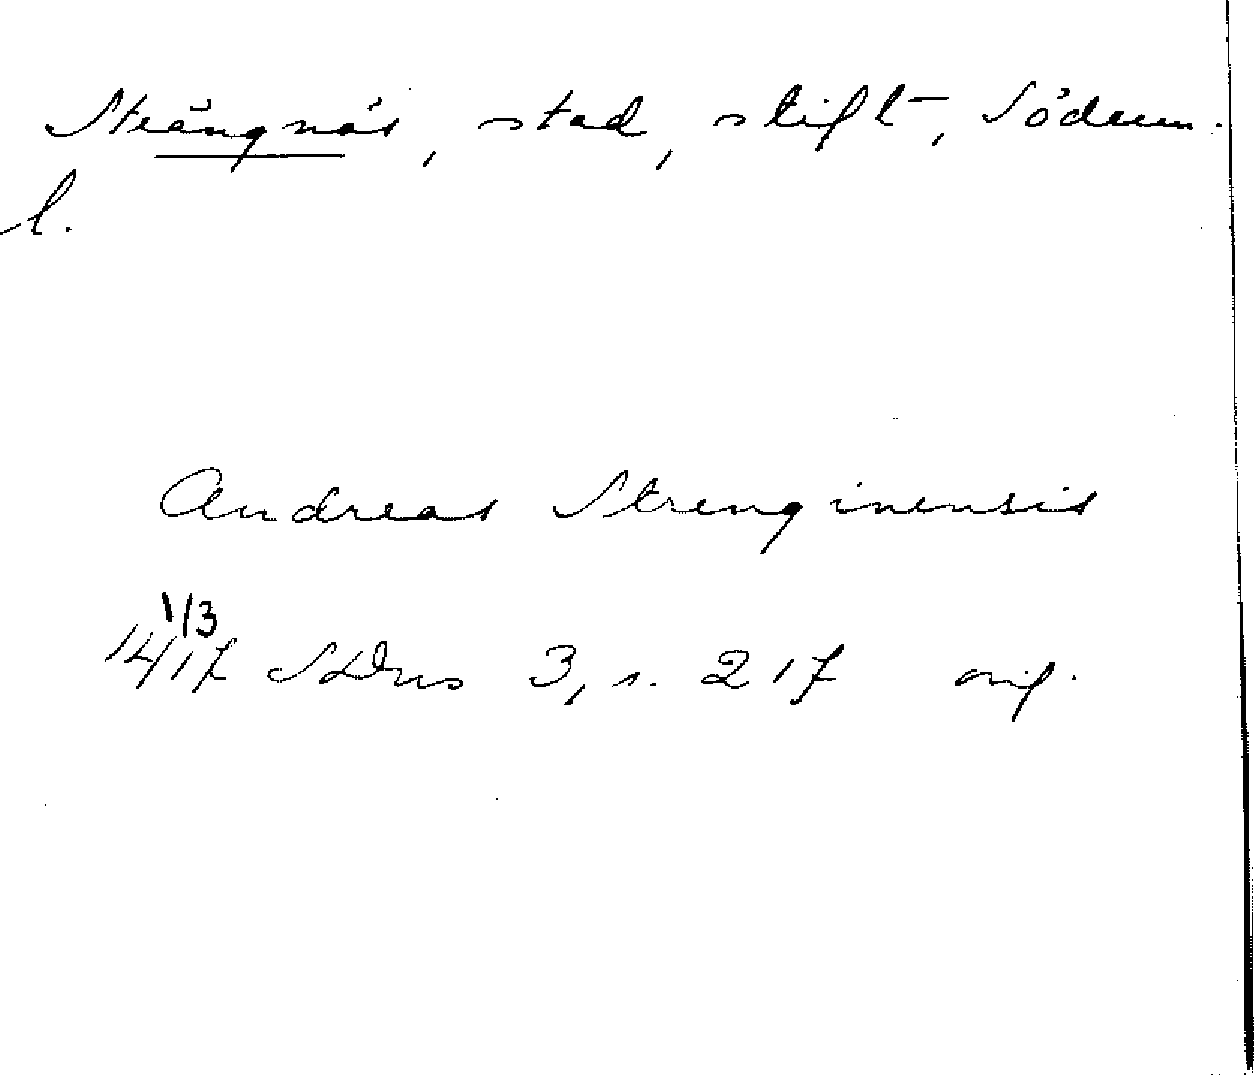 Strängnäs, stad, stift, Söderm.
l.
Andreas Strenginensis
1/3
1417 SDns 3, s. 217 orig.